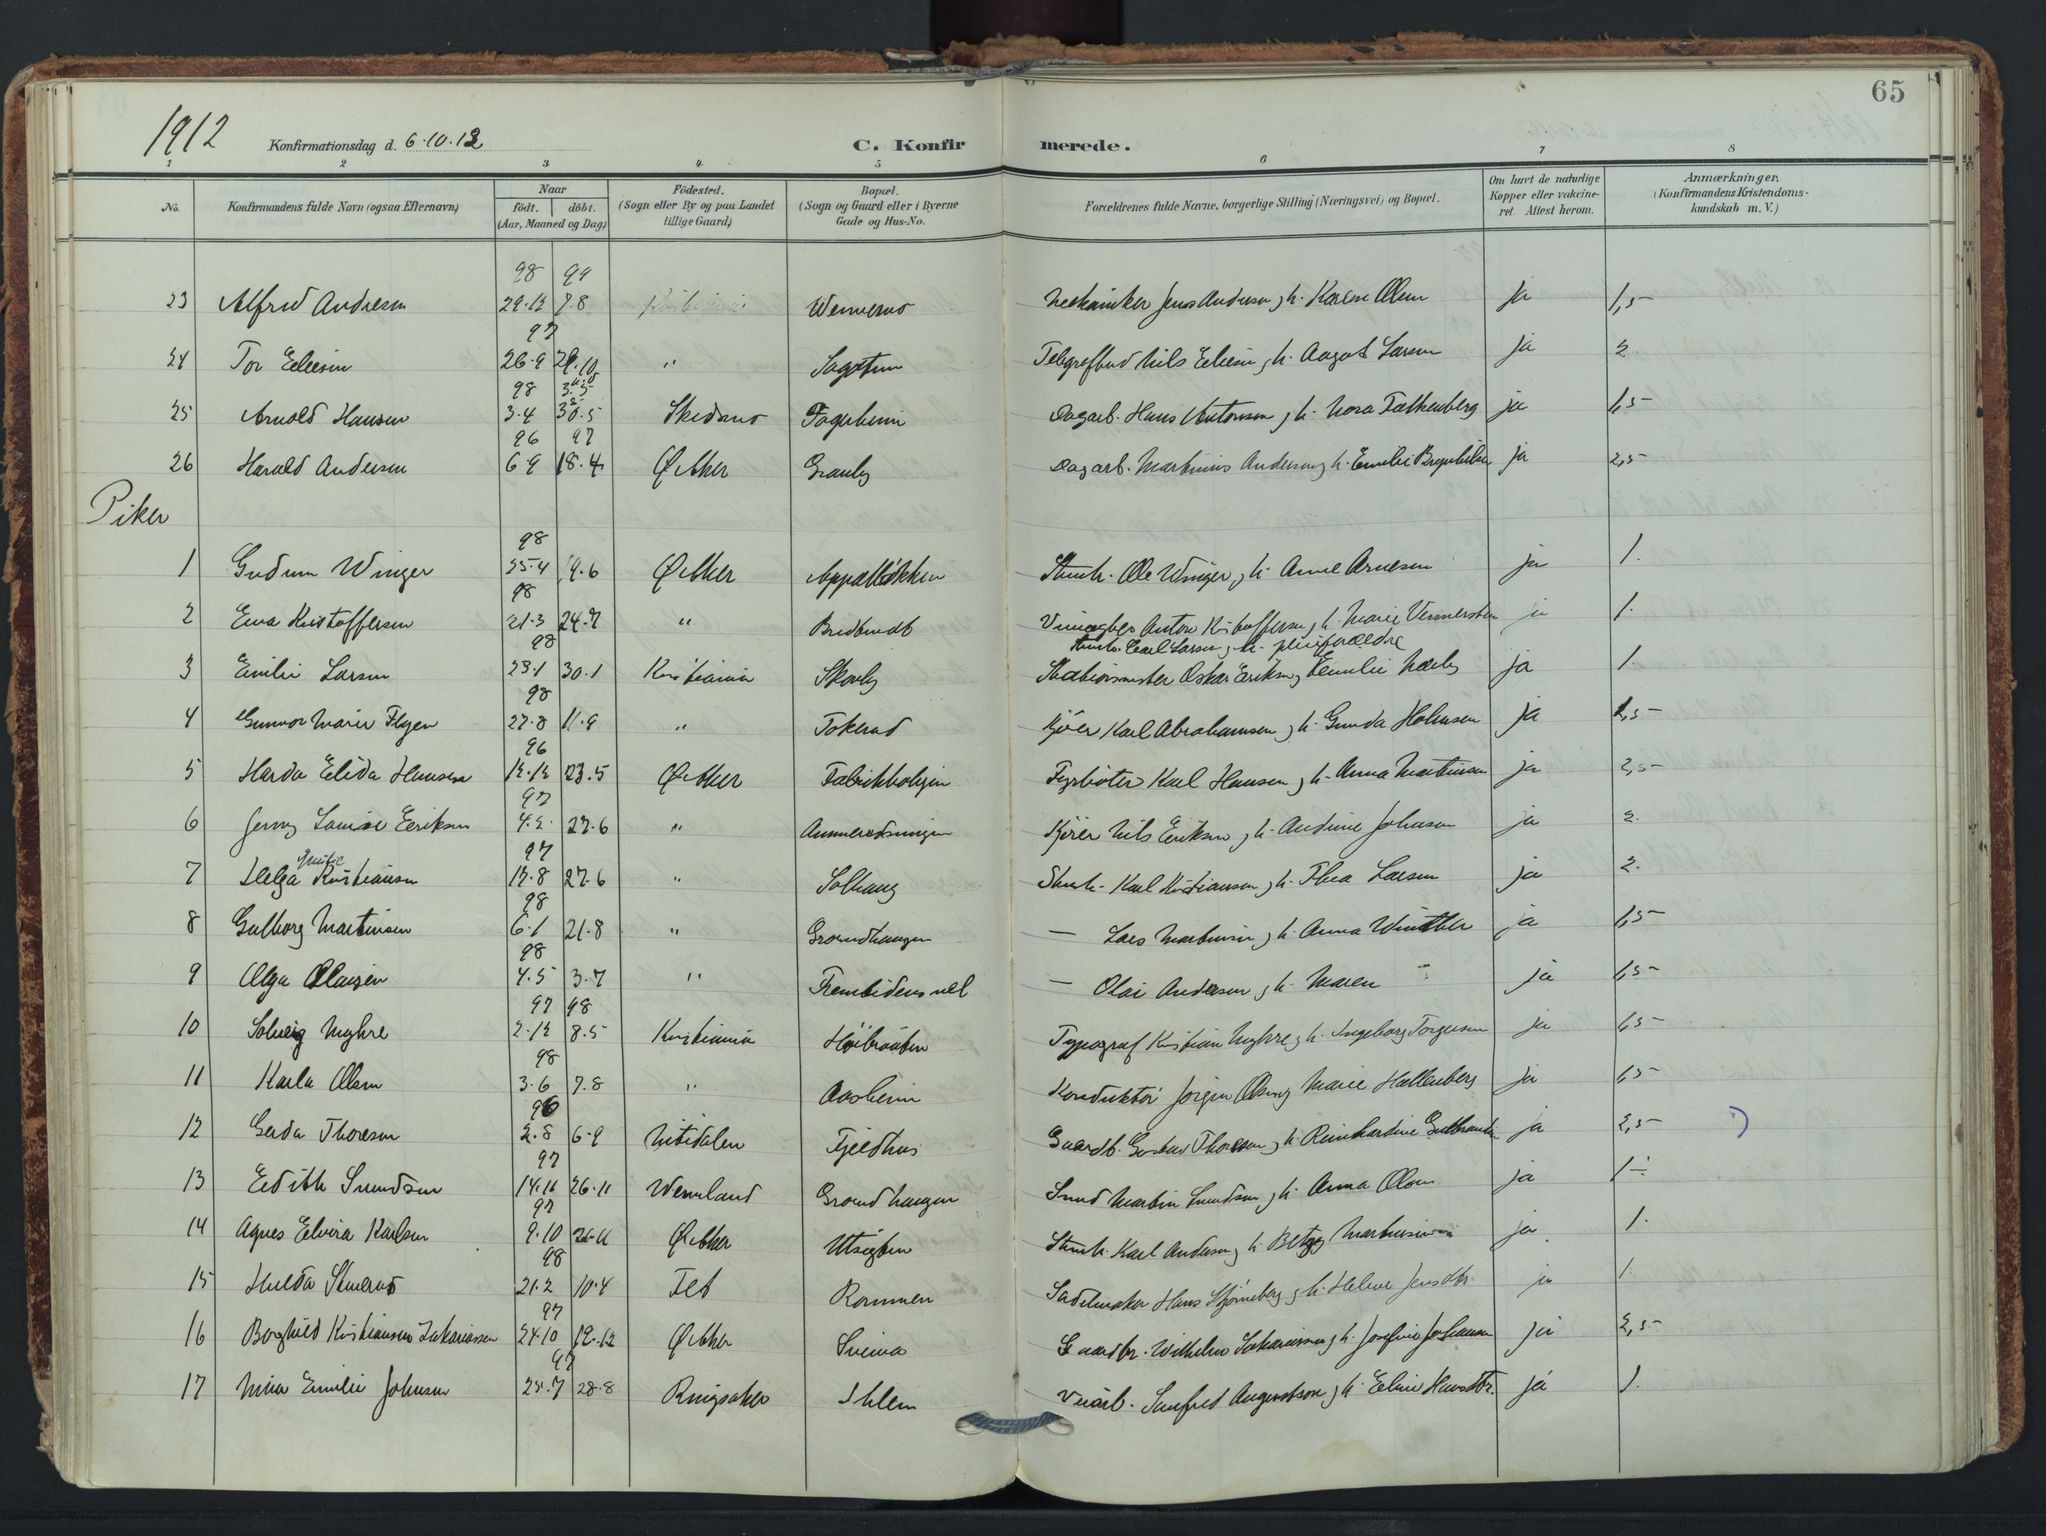 65
1912 Konfirmationsdag d. 6.10.12 C. Konfirmerede.
1 2 3 4 5 6 7 8
No. Konfirmandens fulde Navn (ogsaa Efternavn) Naar født. døbt. (Aar, Maaned og Dag) Fødested. (Sogn eller By og paa Landet tillige Gaard) Bopæl. (Sogn og Gaard eller i Byerne Gade og Hus-No. Forældrenes fulde Navne, borgerlige Stilling (Næringsvei) og Bopæl. Om havt de naturlige Kopper eller vakcineret Attest herom. Anmærkninger. (Konfirmandens Kristendomskundskab m. V.)
98 99
23 Alfred Andresen 29.12 7.8 Kristiania Jens Andersen, h. Karen Olsen ja 1,5
97
24 Tor Eliesen 26.9 Sagstun Telegrafbud Nils Eliesen, h. Aagot Larsen ja 2.
98
25 Arnold Hansen 3.4 30.5 Skedsmo Fagerheim Dagarb. Hans Antonsen, h. Nora Falkenberg ja 1,5
96 97
26 Harald Andersen 6.9 18.4 Ø. Aker Granly Dagarb. Martinius Andersen, h. Emilie ja 2,5
Piker
98
1 Gudrun Winger 25.4 19.6 Ø. Aker Appalløkken Stenh. Ole Winger, h. Anne Arnesen ja 1.
98
2 Ewa Kristoffersen 21.3 24.7 " Anton Kristoffersen, h. Marie ja 1.
98 Stenh. Carl Larsen, h. pleieforældre
3 Emilie Larsen 23.1 30.1 Kristiania Skovly Stationsmester Oskar Eriksen, Emilie Næsby ja 1.
98
4 Gunvor Marie Flyen 27.8 11.9 " Tokerud Kjører Karl Abrahamsen, h. Gunda Holmsen ja 1,5
96
5 Harda Elida Hansen 12.12 23.5 Ø. Aker Fabrikboligen Fyrbøter Karl Hansen, h. Anna Martinsen ja 2,5
97
6 Jenny Louise Eriksen 4.2. 27.6 " Ammerudsvingen Kjører Nils Eriksen, h. Andrine Johnsen ja 2.
97
7 Helga Kristiansen 12.8 27.6 " Solhaug Stenh. Karl Kristiansen, h. Thea Larsen ja 2.
98
8 Gulborg Martinsen 6.1 21.8 " Grorudhaugen — Lars Martinsen, h. Anna Winther ja 1,5
98
9 Olga Olaisen 4.5 3.7 " Fremtidens vel — Olai Andersen, h. Maren " ja 1,5
97 98
10 Solveig Myhre 2.12 8.5 Kristiania Høibraaten Typograf Kristian Myhre, h. Ingeborg Torgersen ja 1,5
98
11 Karla Olsen 3.6 7.8 " Aasheim Konduktør Jørgen Olsen, Marie Hallenberg ja 1,5
96
12 Gerda Thoresen 2.8 6.9 Nitedalen Fjeldhus Gaardb. Gustav Thoresen, h. Reinhardine Gulbrands ja 2,5
97
13 Edith Svendsen 14.11 26.11 Wermland Grorudhaugen Smed Martin Svendsen, h. Anna Olsen ja 1÷
97
14 Agnes Elvira Karlsen 9.10 26.11 Ø. Aker Utsigten Stenh. Karl Andersen, h. Betzy Martinsen ja 1.
98
15 Hulda Stuerud 21.2 10.4 Fet Rommen Sadelmaker Hans Stjerneberg, h. Helene Jensdtr. ja 1.
97
16 Borghild Kristiansen Zakariassen 24.10 12.12 Ø. Aker Gaardbr. Wilhelm Zakariassen, h. Josefine Johansen ja 2,5
97
17 Nina Emilie Johnsen 25.7 28.8 Ringsaker Ihlem Veiarb. Sanfred Augustson, h. Eline Hansdtr. ja 1.